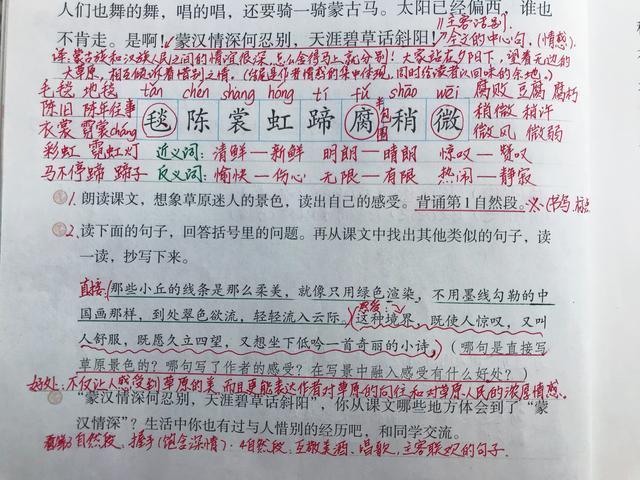 人们也舞的舞，唱的唱，还要骑一骑蒙古马。太阳已经偏西，谁也
不肯走。是啊！蒙汉情深何忍别，天涯碧草话斜阳！
主客话别
全文的中心句。(情感)
蒙古族和汉族人民之间的情谊很深，怎么舍得马上就分别！大家站在夕阳下，望着无边的
大草原，相互倾诉着惜别之情。
毛毯 地毯 tǎn chén shang hóng tí fǔ shāo wēi 腐败 豆腐 腐朽
陈旧 陈年往事 毯 陈 裳 虹 蹄 腐 稍 微 稍微 稍许
半包围
衣裳 霓裳cháng 微风 微弱
彩虹 霓虹灯 近义词：清鲜—新鲜 明朗—晴朗 惊叹—赞叹
马不停蹄 蹄子 反义词：愉快—伤心 无限—有限 热闹—静寂
1.朗读课文，想象草原迷人的景色，读出自己的感受。背诵第1自然段。
2.读下面的句子，回答括号里的问题。再从课文中找出其他类似的句子，读
一读，抄写下来。
直接：那些小丘的线条是那么柔美，就像只用绿色渲染，不用墨线勾勒的中
国画那样，到处翠色欲流，轻轻流入云际。这种境界，既使人惊叹，又叫
感受：
人舒服，既愿久立四望，又想坐下低吟一首奇丽的小诗。(哪句是直接写
草原景色的？哪句写了作者的感受？在写景中融入感受有什么好处？)
好处：不仅让人感受到草原的美，而且更能表达作者对草原的向往和对草原人民的浓厚情感。
“蒙汉情深何忍别，天涯碧草话斜阳”，你从课文哪些地方体会到了“蒙
汉情深”？生活中你也有过与人惜别的经历吧，和同学交流。
自然段，握手(饱含深情)：4自然段，互敬美酒、唱歌，主客联欢的句子。